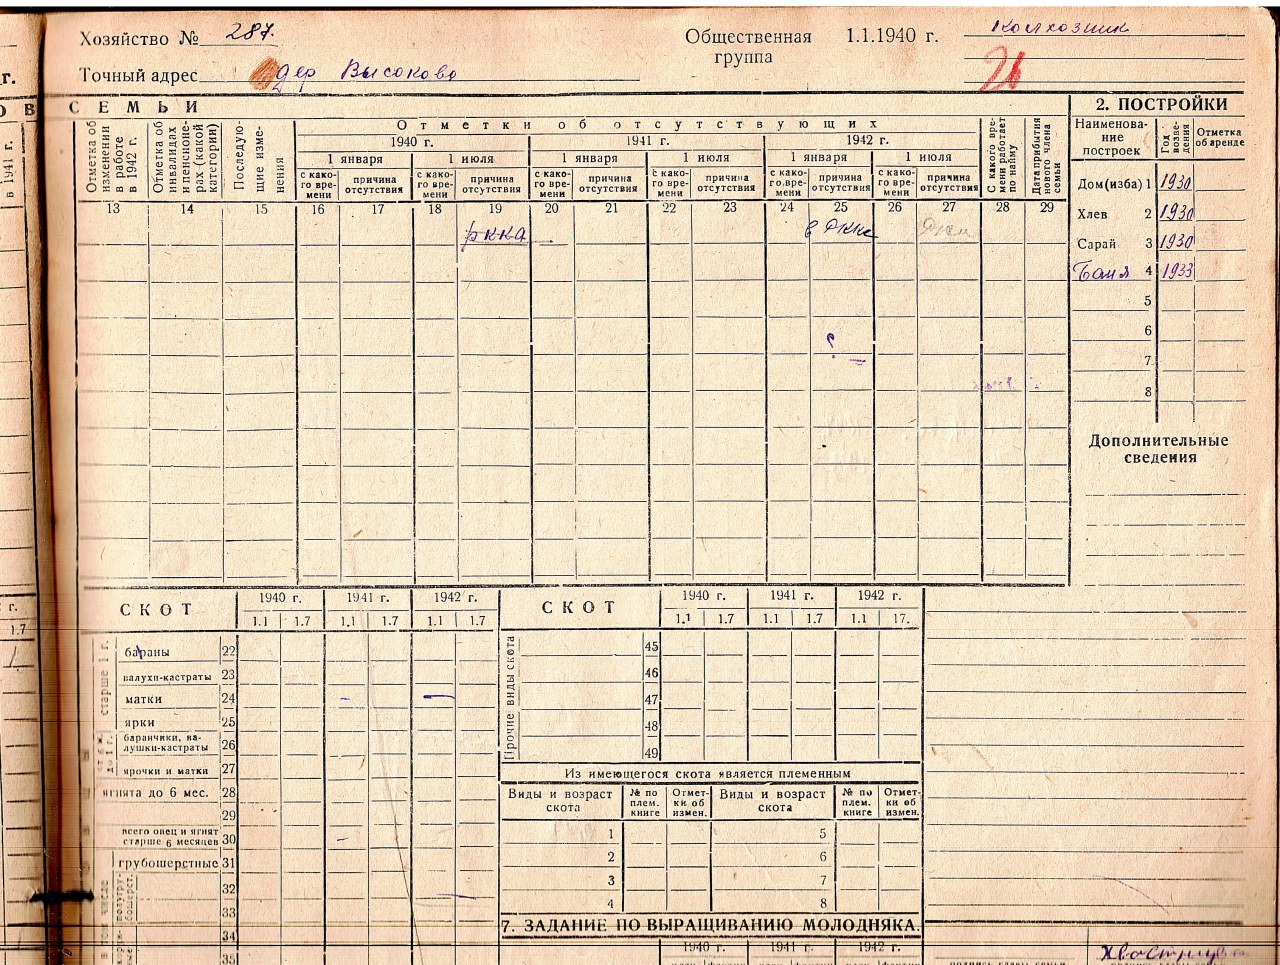 Хозяйство № 287.
Общественная группа 1.1.1940 г. колхозник
21
Точный адрес дер Высоково
г.
ОВ
в 1941 г.
СЕМЬИ
Отметка об изменении в работе в 1942 г.
Отметка об инвалидах и пенсионерах (какой категории)
Последующие изменения
Отметки об отсутствующих
1940 г. 1941 г. 1942 г.
1 января 1 июля 1 января 1 июля 1 января 1 июля
с како-го вре-мени причина отсутствия с како-го вре-мени причина отсутствия с како-го вре-мени причина отсутствия с како-го вре-мени причина отсутствия с како-го вре-мени причина отсутствия с како-го вре-мени причина отсутствия
С какого вре-мени работает по найму
Дата прибытия нового члена семьи
13 14 15 16 17 18 19 20 21 22 23 24 25 26 27 28 29
ркка в РККА
?
2. ПОСТРОЙКИ
Наименова-ние построек Год возве-дения Отметка об аренде
Дом (изба) 1 1930
Хлев 2 1930
Сарай 3 1930
Баня 4 1933
5
6
7
8
Дополнительные
сведения
г.
1.7
СКОТ 1940 г. 1941 г. 1942 г.
1.1 1.7 1.1 1.7 1.1 1.7
старше 1 г.
бараны 22
валухи-кастраты 23
матки 24
ярки 25
баранчики, ва-
лушки-кастраты 26
ярочки и матки 27
ягнята до 6 мес. 28
29
всего овец и ягнят
старше 6 месяцев 30
грубошерстные 31
32
33
34
35
СКОТ 1940 г. 1941 г. 1942 г.
1.1 1.7 1.1 1.7 1.1 17.
Прочие виды скота
45
46
47
48
49
Из имеющегося скота является племенным
Виды и возраст скота № по плем. книге Отмет-ки об измен. Виды и возраст скота № по плем. книге Отмет-ки об измен.
1 5
2 6
3 7
4 8
7. ЗАДАНИЕ ПО ВЫРАЩИВАНИЮ МОЛОДНЯКА.
1940 г. 1941 г. 1942 г.